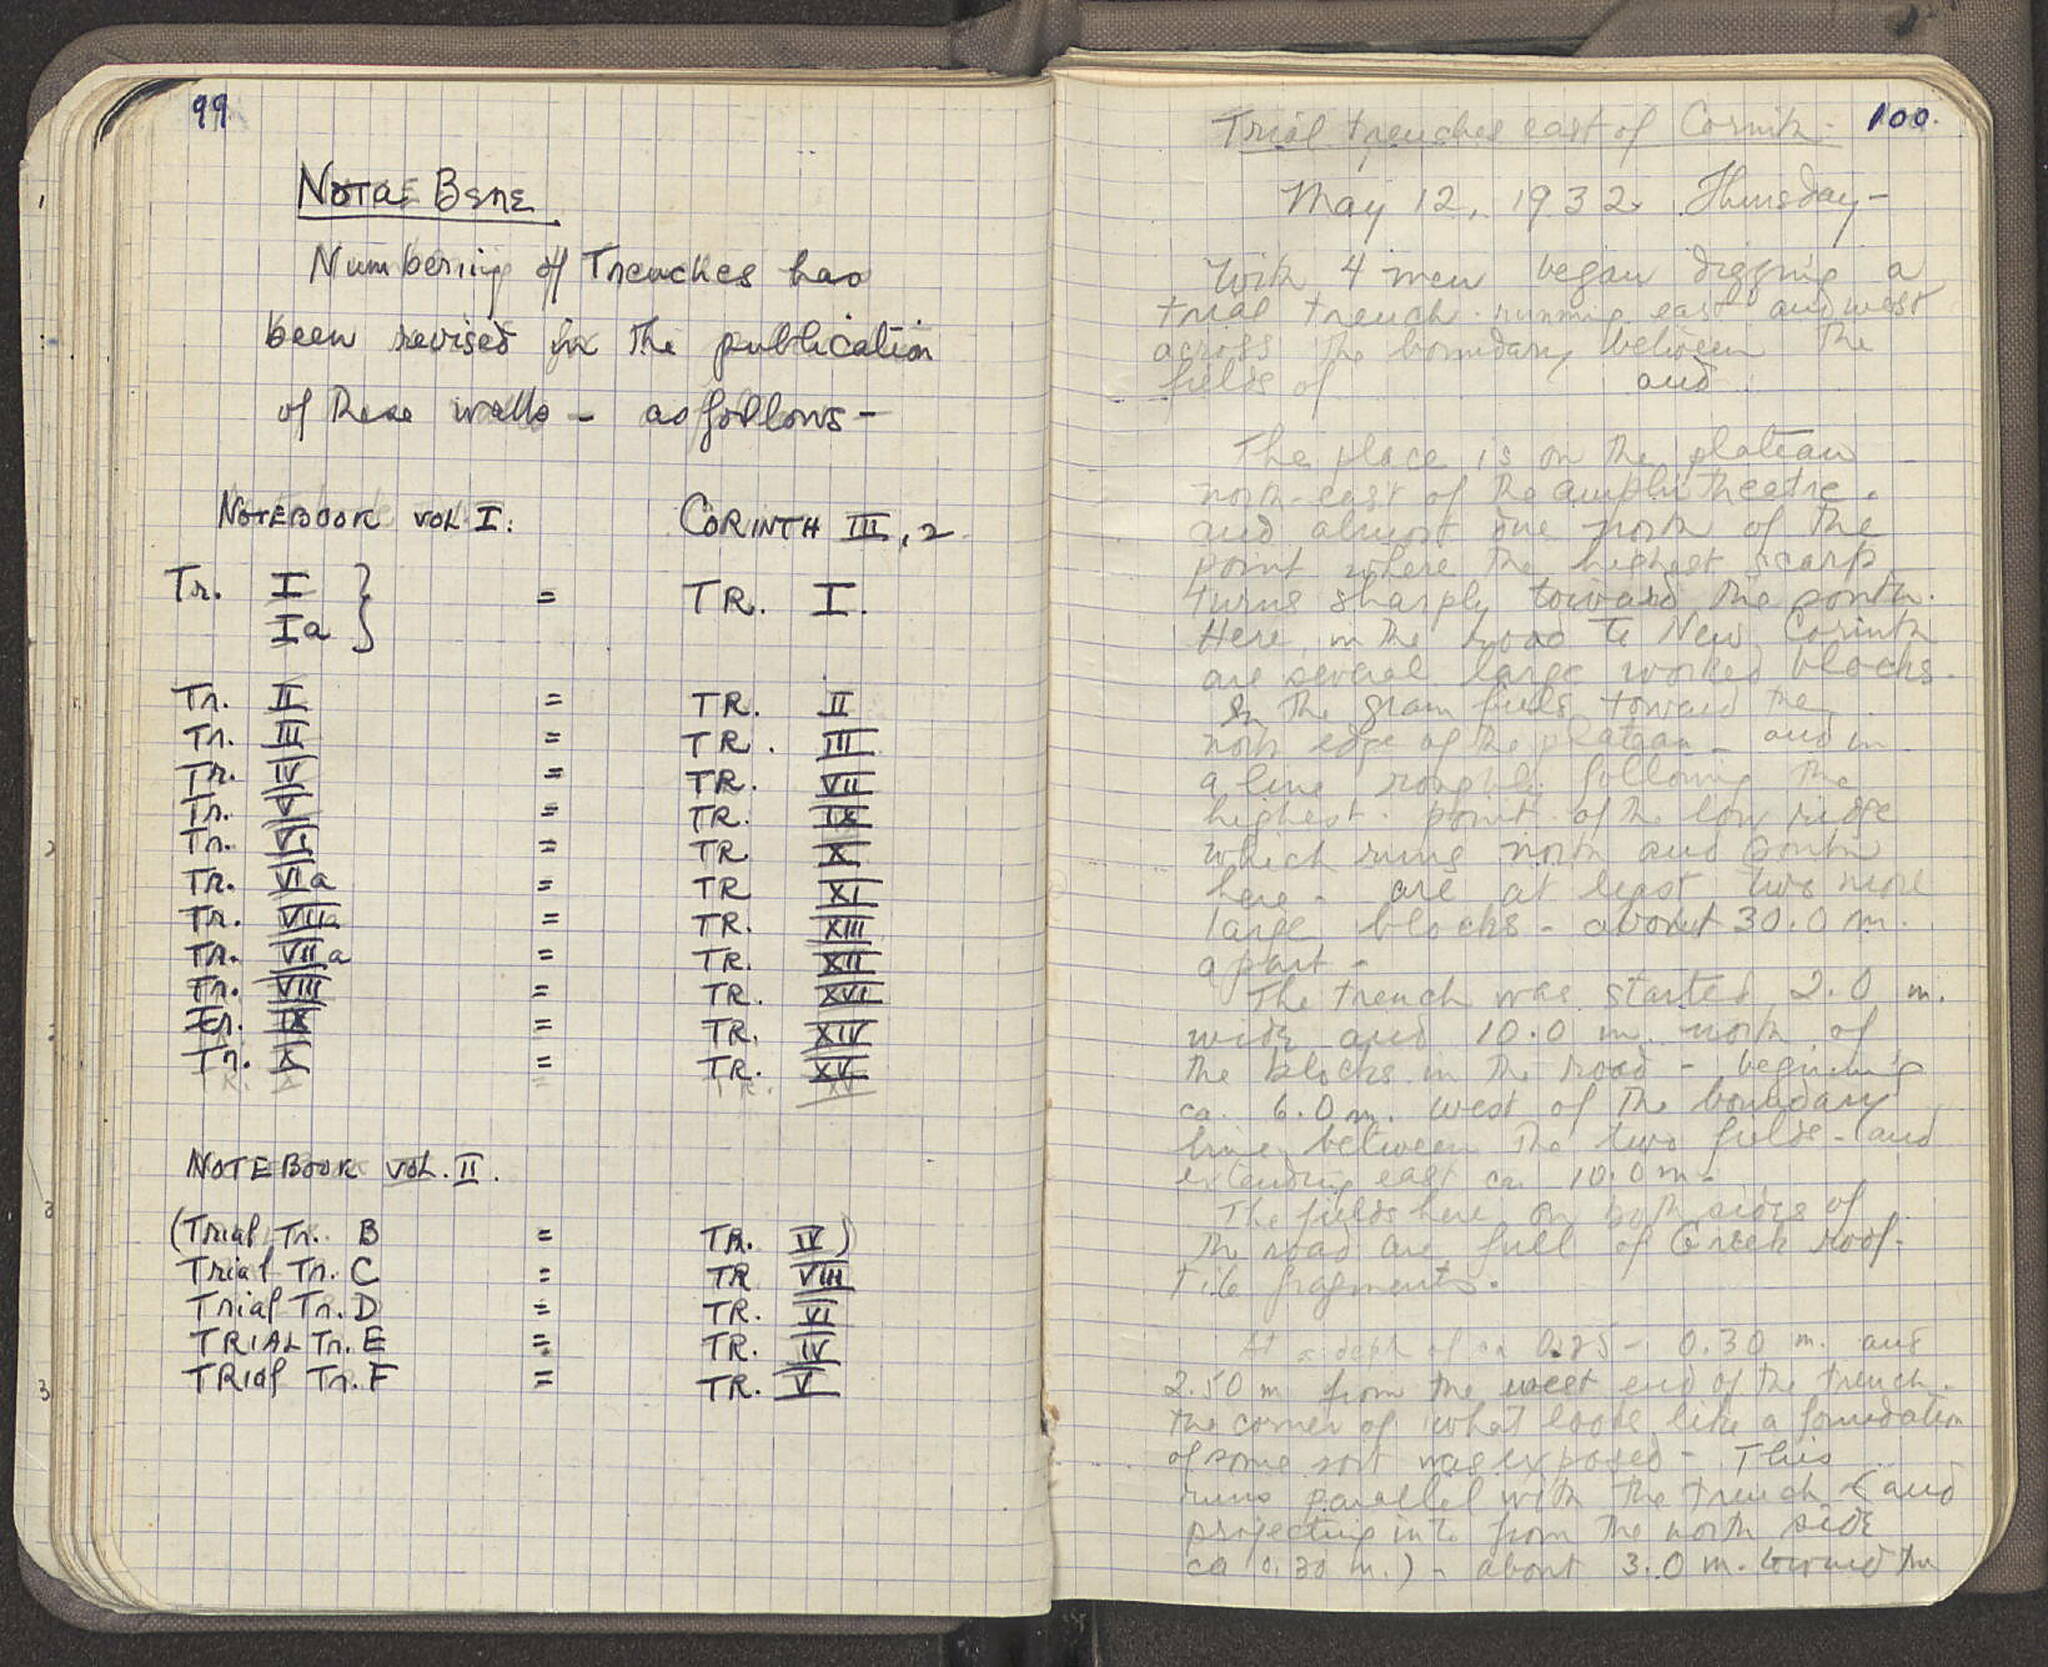 99
NOTAE BENE
Numbering of Trenches has
been revised in the publication
of these walls – as follows –
NOTEBOOK VOL I: CORINTH III, 2.
Tr. I } = TR. I.
Ia }
Tr. II = TR. II
Tr. III = TR. III
Tr. IV = TR. VII
Tr. V = TR. IX
Tr. VI = TR X
Tr. VIa = TR XI
Tr. VIIa = TR. XIII
Tr. VIIa = TR. XII
Tr. VIII = TR. XVI
Tr. IX = TR. XIV
Tr. X = TR. XV
NOTEBOOK VOL. II.
(Trial Tr. B = TR. IV)
Trial Tr. C = TR VIII
Trial Tr. D = TR. VI
TRIAL Tr. E = TR. IV
TRIal Tr. F = TR. V
100.
Trial trenches east of Corinth –
May 12, 1932. Thursday –
With 4 men began digging a
trial trench running east and west
across the boundary between the
fields of and
The place is on the plateau
north-east of the amphitheatre.
and almost due north of the
point where the highest scarp
turns sharply toward the south.
Here, in the road to New Corinth
are several large worked blocks.
In the grain fields toward the
north edge of the plateau – and in
a line roughly following the
highest point of the low ridge
which runs north and south
here – are at least two more
large blocks – about 30.0 m.
apart –
The trench was started 2.0 m.
wide and 10.0 m. north of
the blocks in the road – beginning
ca. 6.0 m. west of the boundary
line between the two fields – and
extending east ca 10.0 m –
The fields here on both sides of
the road are full of Greek roof-
tile fragments.
At a depth of ca 0.25 – 0.30 m. and
2.50 m from the west end of the trench.
the corner of what looks like a foundation
of some sort was exposed – This
runs parallel with the trench (and
projecting into from the north side
ca 0.30 m.) – about 3.0 m. toward the